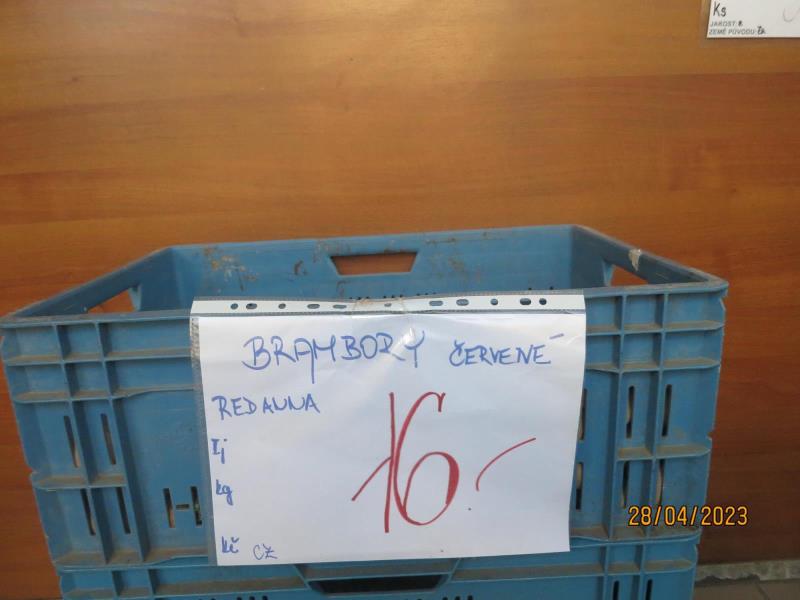 Ks
JAKOST:
ZEMĚ PŮVODU:
BRAMBORY ČERVENÉ
RED ANNA
Ij
16.-
kg
Kč CZ
28/04/2023